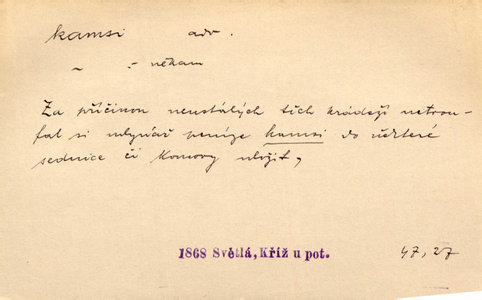 kamsi adv.
~ :- někam
Za příčinou neustálých těch krádeží netrou-
fal si mlynář peníze kamsi do některé
sednice či komory uložit,
1868 Světlá, Kříž u pot.
47, 27